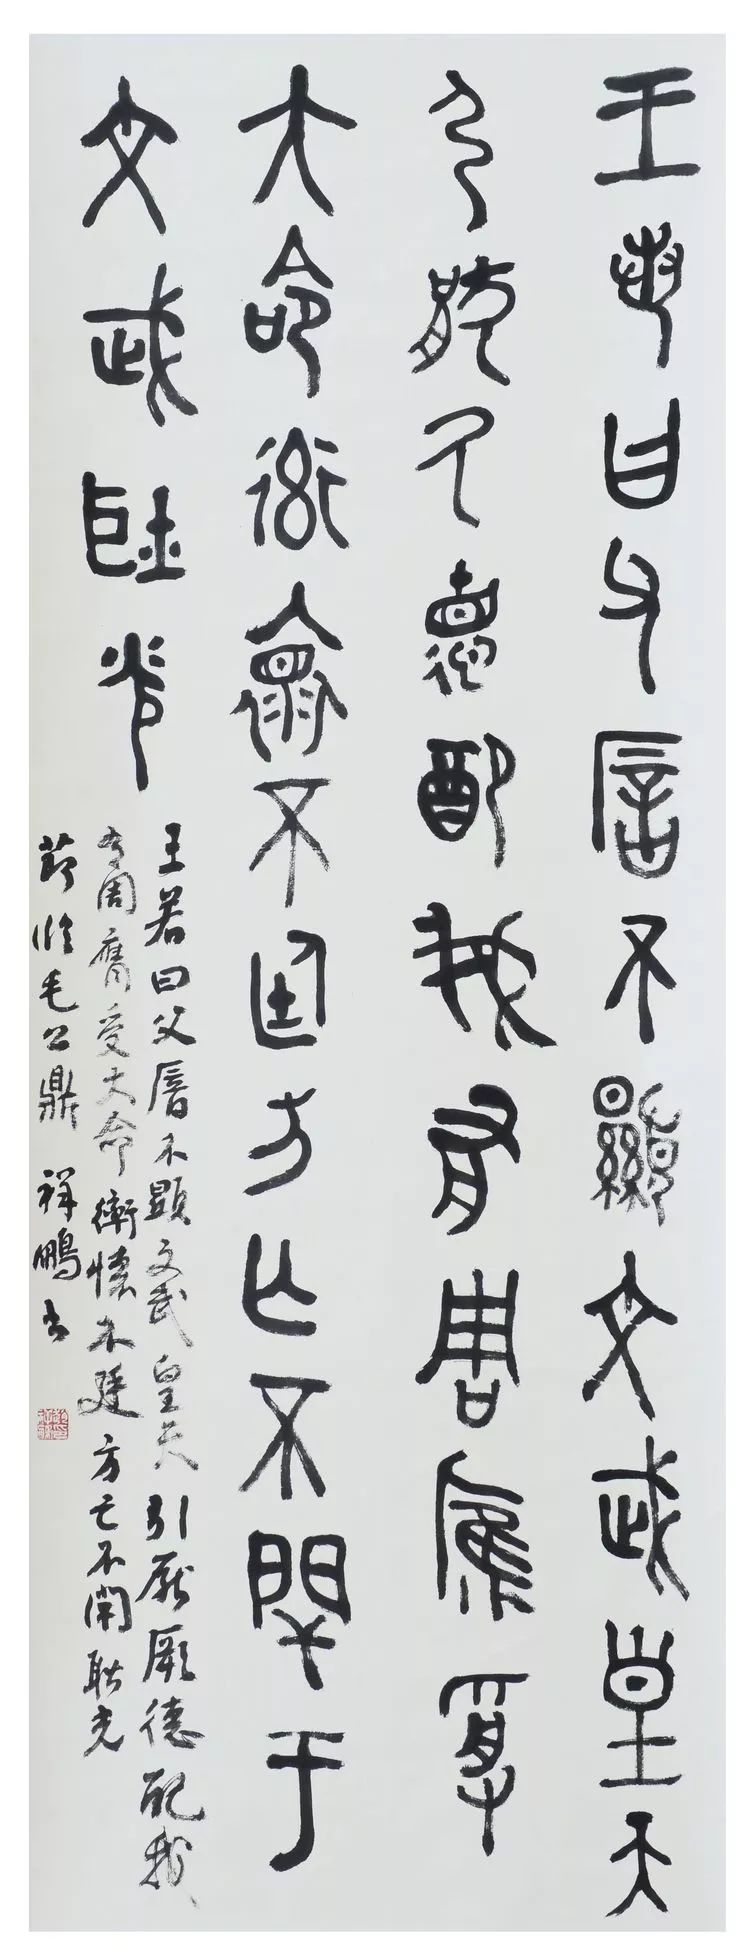 王若曰父厝不顯文武皇天
引猒厥德配我有周膺受
大命率懷不廷方亡不閈于
文武耿光
王若曰父厝不顯文武皇天引厭厥德配我
有周膺受大命率懷不廷方亡不閈耿光
節臨毛公鼎 祥鵬書